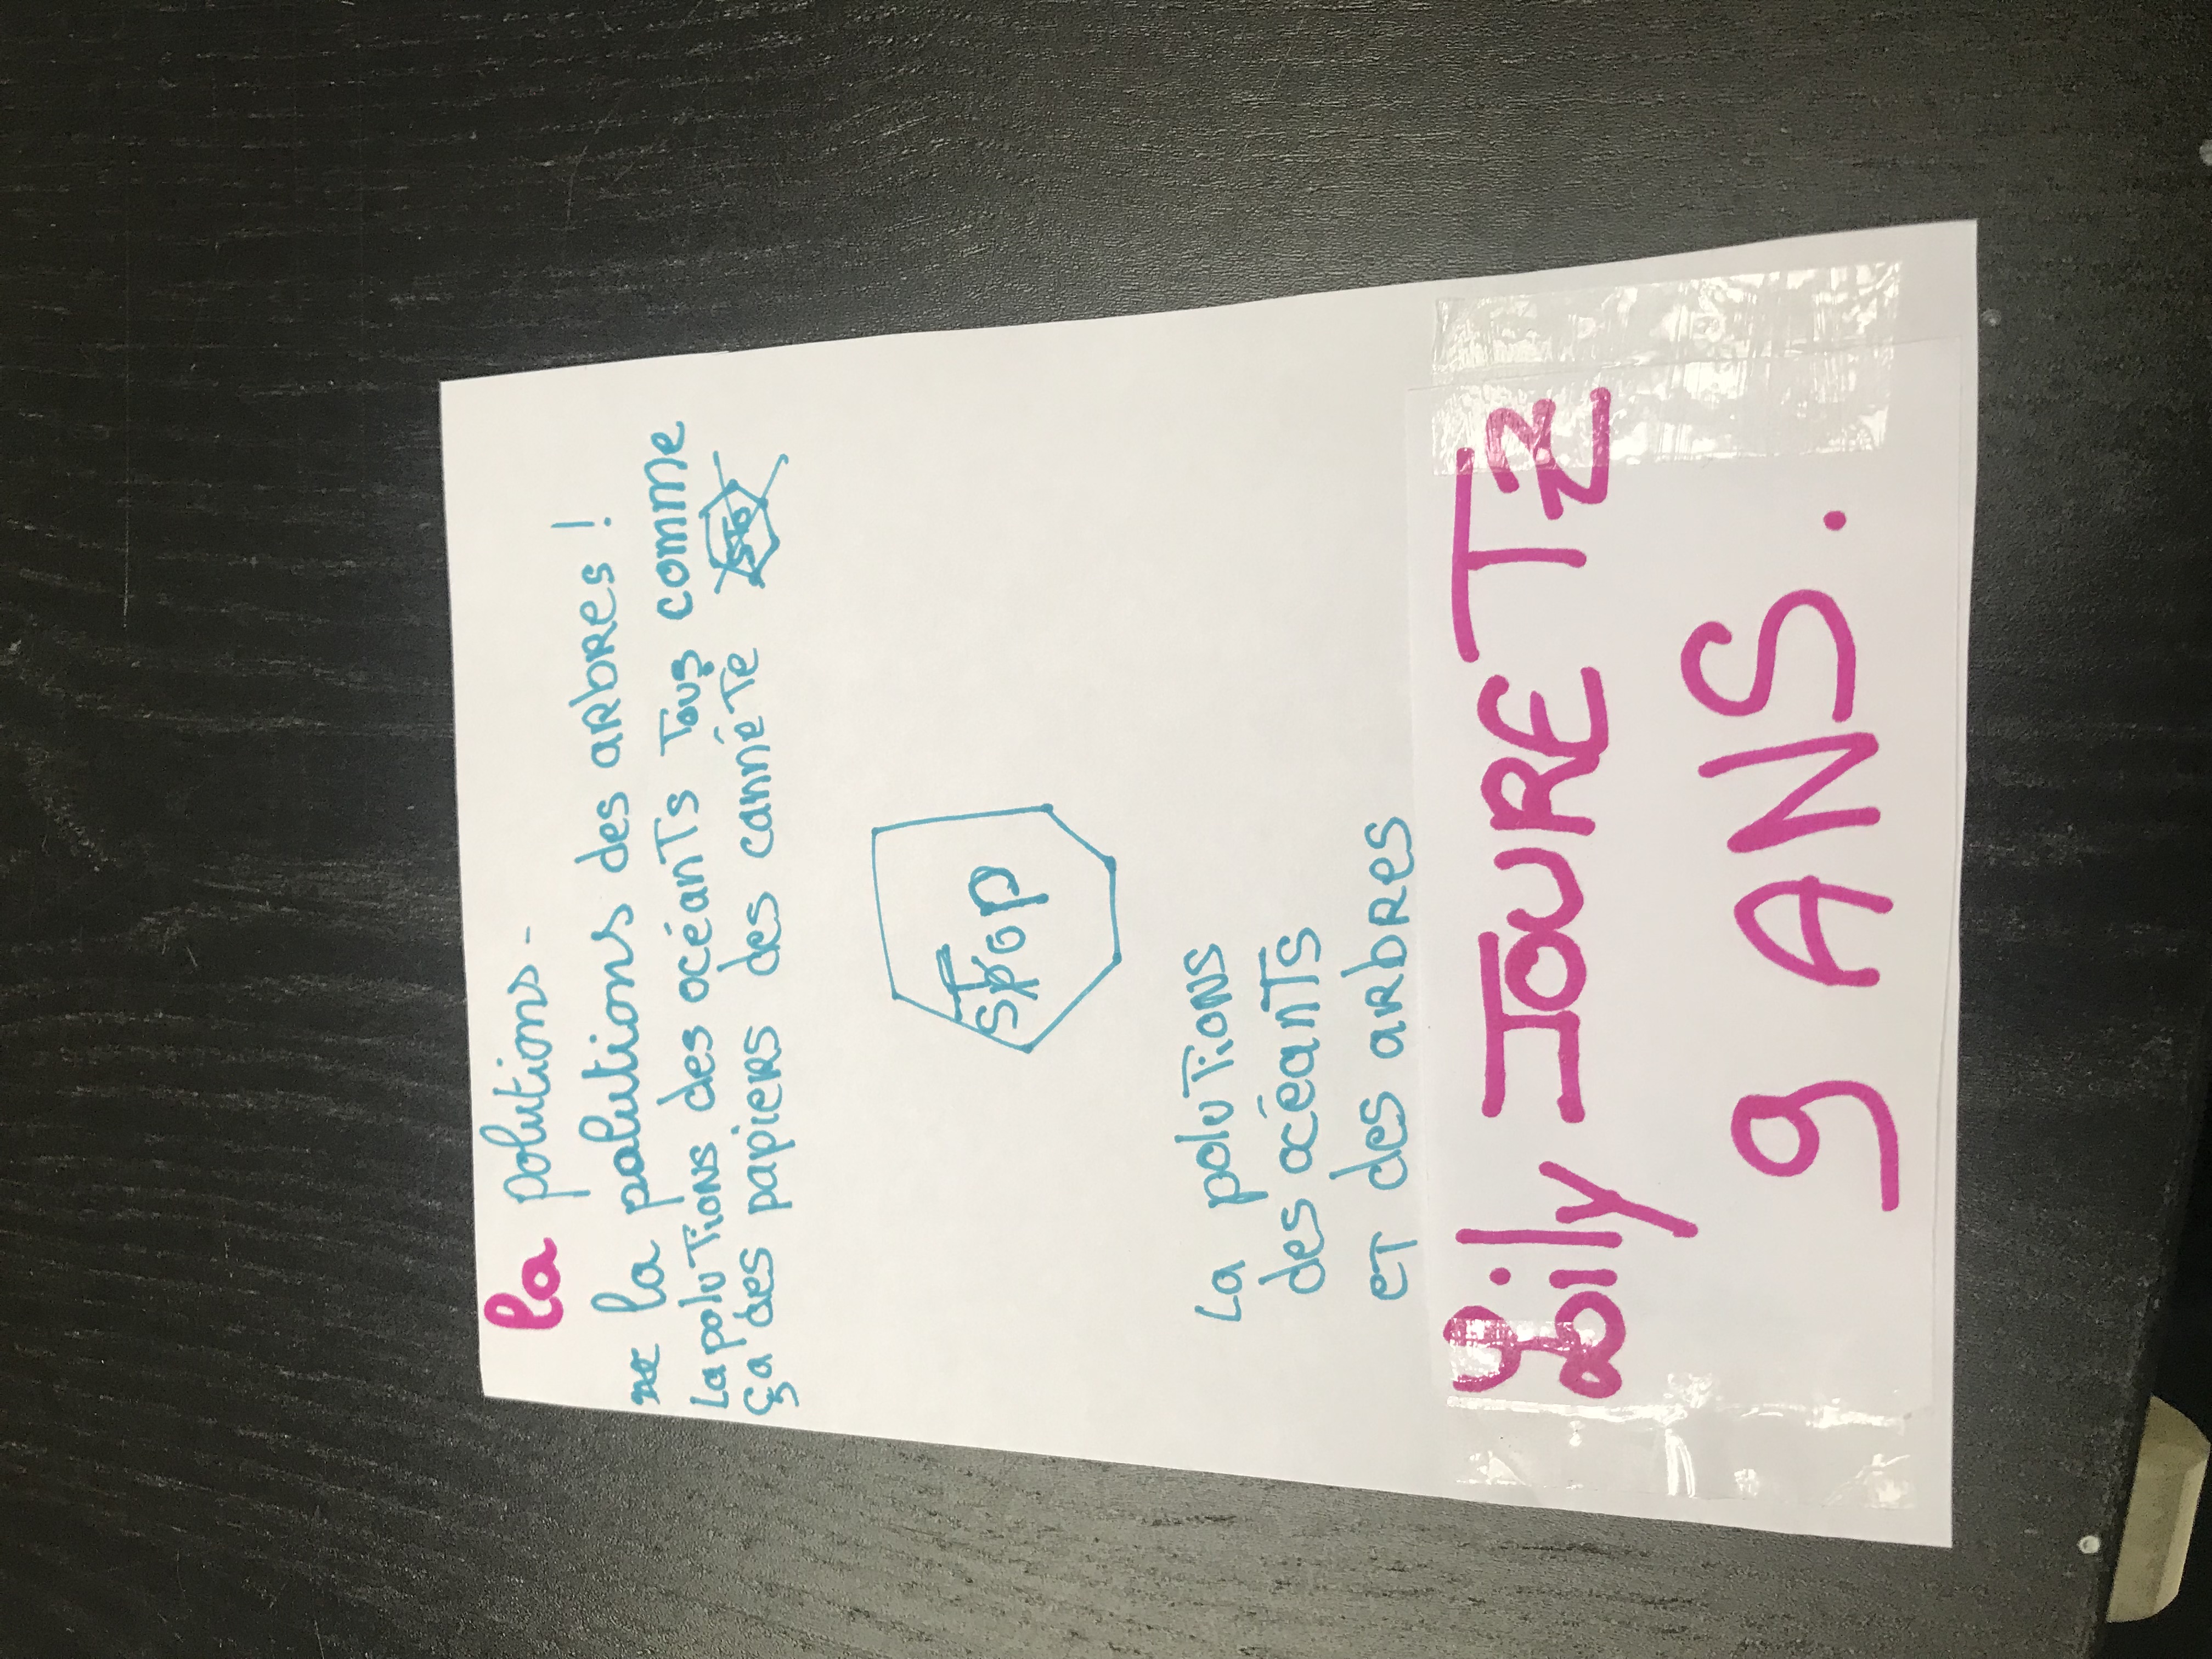 la polutions -
la polutions des arbres !
La poluTions des océanTs Tous comme
ça des papiers des cannéTe
STop
La poluTions
des océanTs
eT des arbres
Lily JOURETZ
9 ANS.